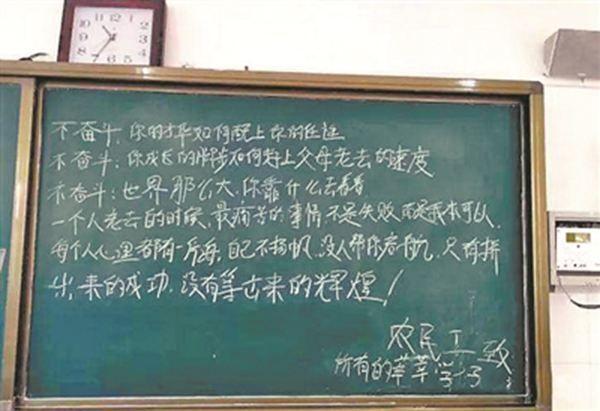 不奋斗,你的才华如何配上你的任性
不奋斗:你成长的脚步如何赶上父母老去的速度
不奋斗:世界那么大,你靠什么去看看
一个人老去的时候,最痛苦的事情不是失败,而是我本可以,
每个人心里都有一片海,自己不扬帆,没人帮你启航,只有拼
出来的成功,没有等出来的辉煌!
农民工 致
所有的莘莘学子